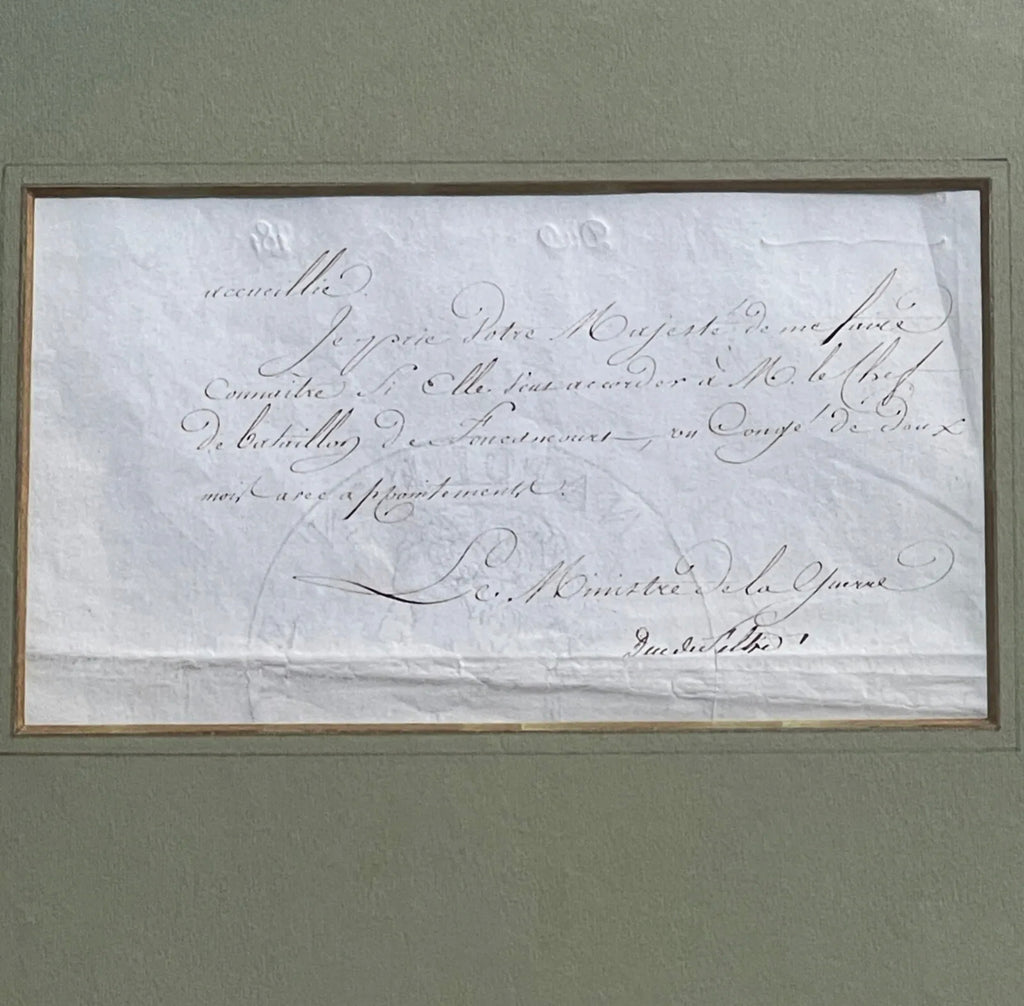 accueillie.
Je prie Votre Majesté de me faire
Connaitre Si Elle veut accorder à M. le Chef
de bataillon de Foucancourt, un Congé de deux
mois avec appointements.
Le Ministre de la Guerre
Duc de Feltre